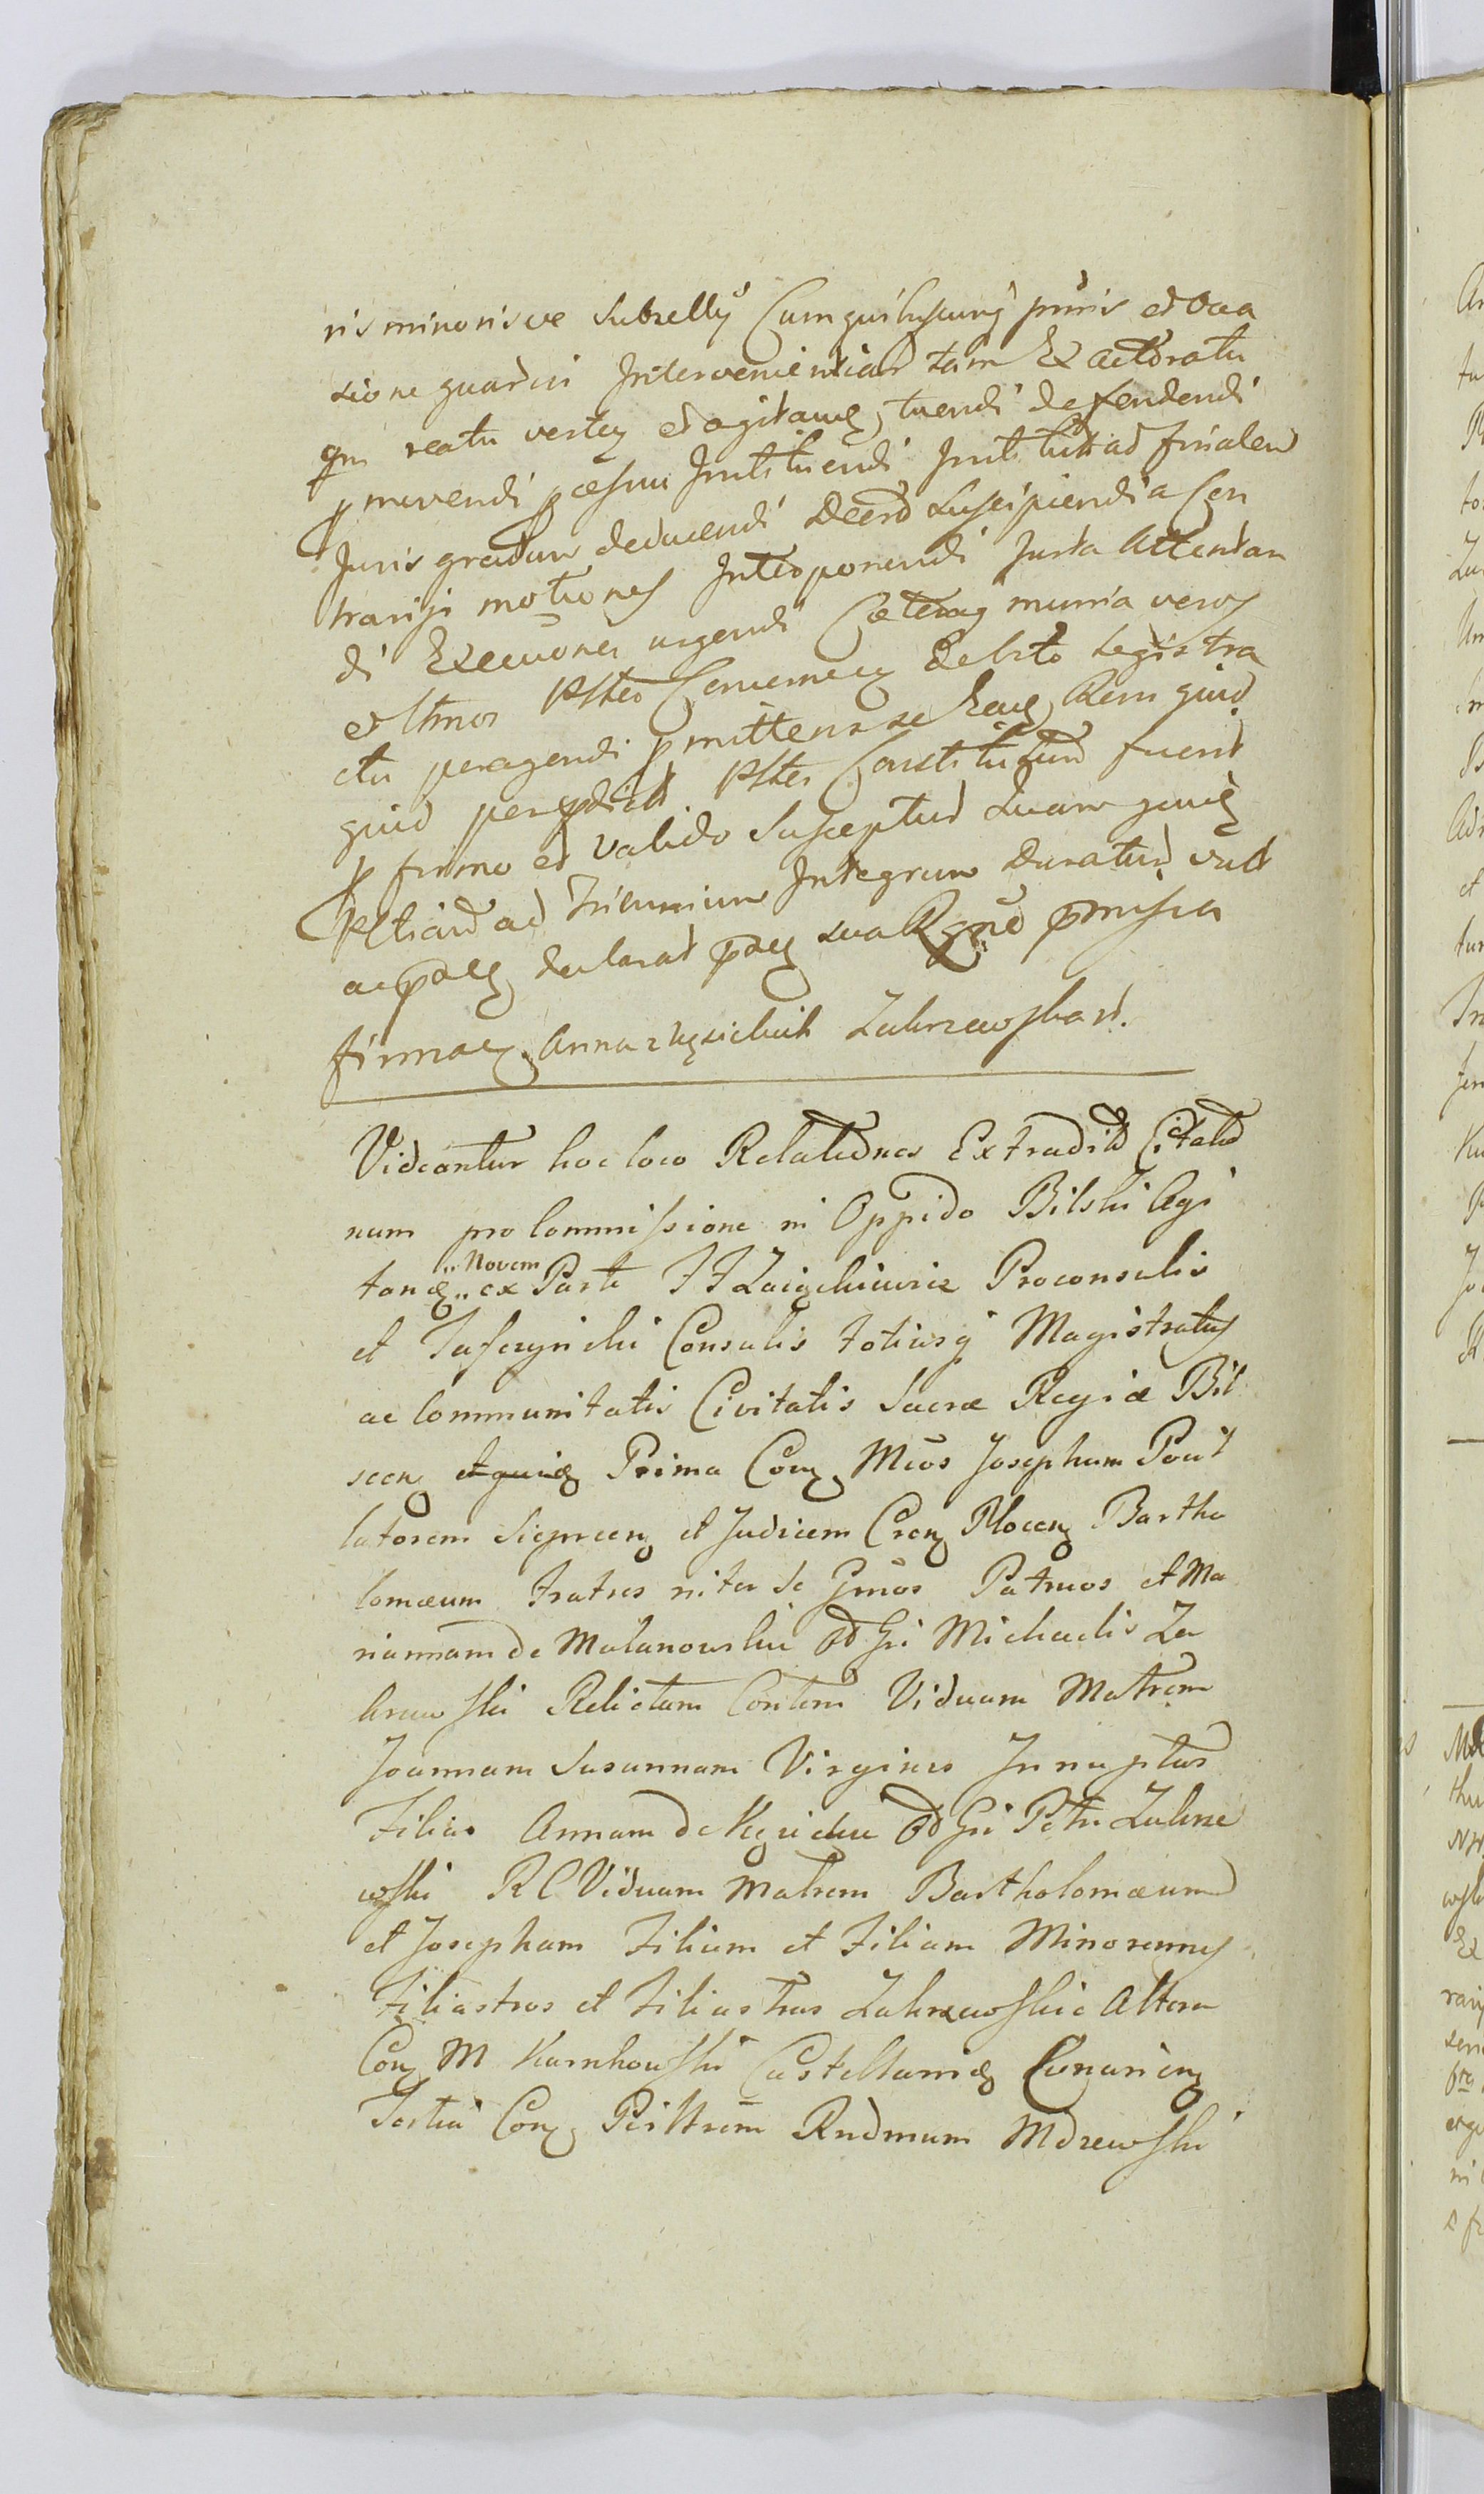 ris minorisve Subselly Cum quibuscunq pnis et occa
sione quarcu Intervenientiar tam Ex actoratu
qm reatu verten et agitanq, tuendi defendendi
p movendi pcessuu Instituendi Institut ad finalem
Juris gradum deducendi Decrd Suscipiendi a Con
trariji motiones Interponendi Justa Attentan
di Execuones urgendi Cæteraq munia veros
et ltmos Psttes Concernen debite Registra
ctu peragendi pmittens se Eaq Rem quid
quid per pdict Psttes Constitutum fuerit
p firmo et valido Suscepturd Suam quiq
Psttiard ad Triennium Integrum Duraturd vult
ac declarat sua pmissa
firmaq Anna z Kęsickich Zakrzewska st.
Videantur hoc loco Relationes Extradit Citatio
num pro Commissione in Oppido Bilski Agi
tanq „ Novem
„ ex Parte F F Proconsulis
et Consulis totiusq Magistratus
ac Communitatis Civitatis Sacræ Regiæ Bil
scen et quidq Prima Con Mcos Josephum Pocil
latorem Sierpcen et Judicem Cren Plocen Bartho
lomæum fratres inter se Gmos Patruos et Ma
riannam de Malanowskie od Gri Michaelis Za
krzewski Relictam Contem Viduam Matrem
Joannam Susannam Virgines Innuptas
Filias Annam de Kęsickie od Gri Petri Zakrze
wski R C Viduam Matrem Bartholomæum
et Josepham Filium et Filiam Minorennes
Filiastros et Filiastras Zakrzewskie Altera
Con M Karnkowski Castellanidæ Conarien
Tertia Con Perlltrem Rndmum Mdzewski